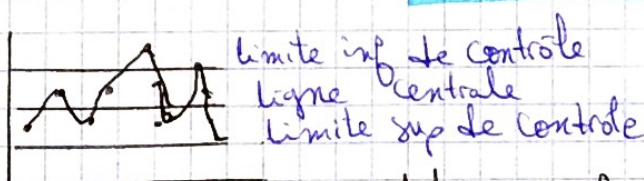 limite inf de contrôle
ligne centrale
limite sup de contrôle